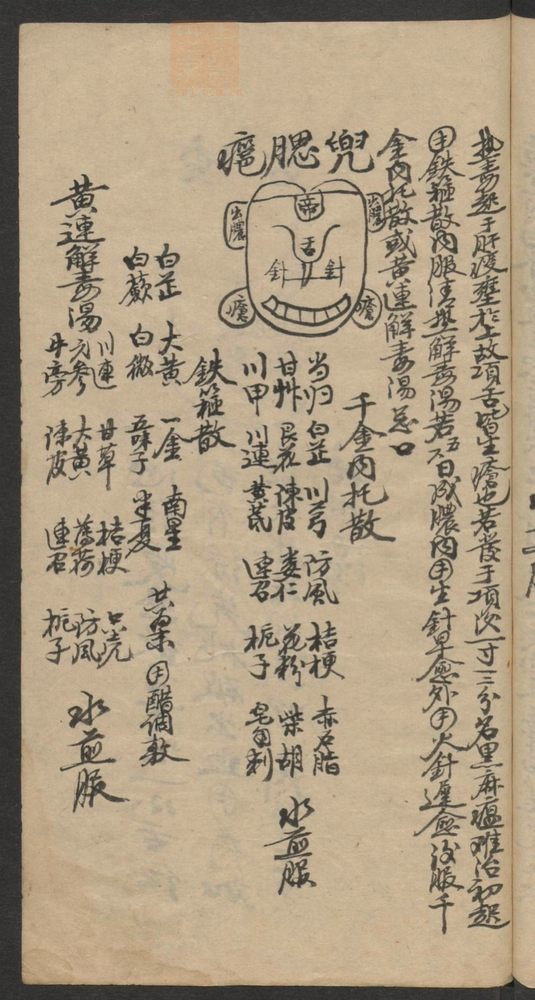 热毒起于肝瘦壅於上故項舌皆生瘡也若发于項次一寸三分名黑麻瘟难治初起
用鉄箍散内服清热解毒湯若五六日成膿内用生針早愈外用火針遲愈後服千
金内托散或黄連解毒湯忌口
兜腮瘟
帝
舌
針 針
出膿
出膿
瘡
瘡
千金内托散
当归 白芷 川芎 防風 桔梗 赤石脂
甘艸 艮花 陳皮 蒌仁 花粉 柴胡
川甲 川連 黄芪 連召 栀子 皂角刺
水煎服
鉄箍散
白芷 大黄 一金 南星
白蔹 白微 五味子 半夏
共為末用醋调敷
黄連解毒湯
川連 甘草 桔梗 只壳
元參 大黄 薄荷 防風
牛蒡 陳皮 連召 栀子
水煎服